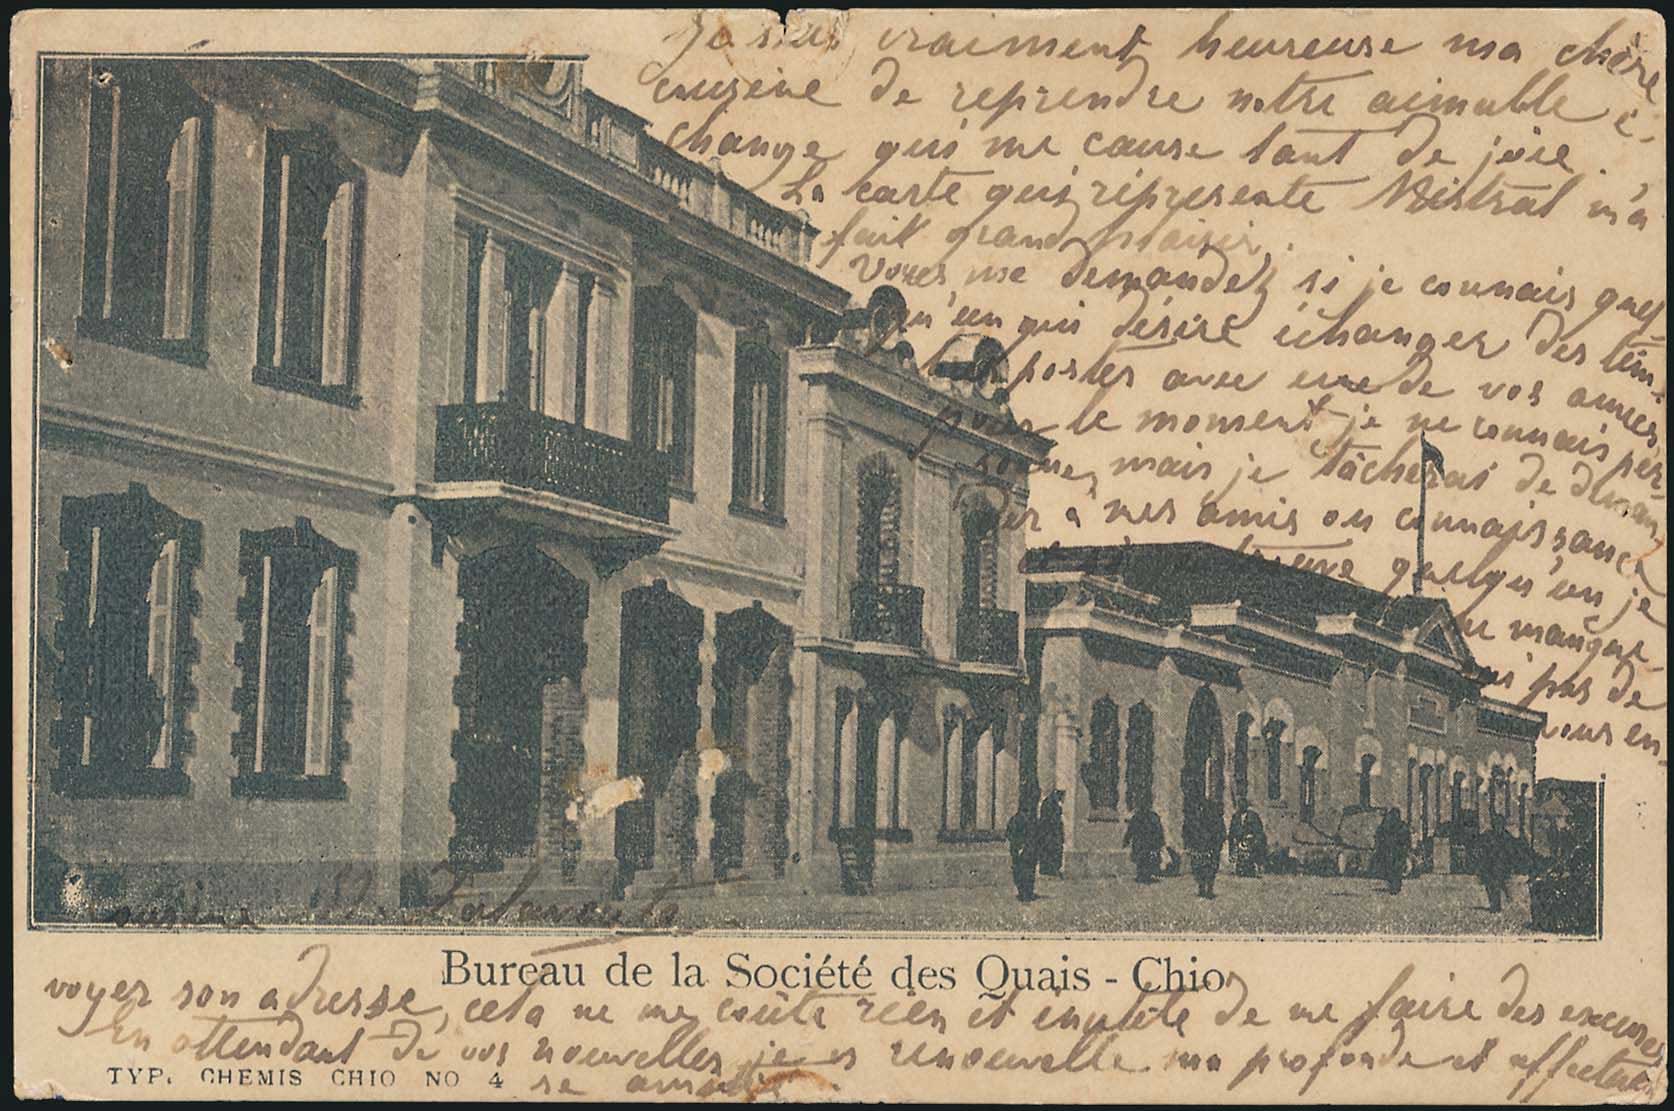 Je suis vraiment heureuse ma chère
cousine de reprendre notre aimable é-
change qui me cause tant de joie.
La carte qui répresente Mistral m'a
fait grand plaisir.
Vous me demandez si je connais quel-
qu'un qui désire échanger des tim-
postes avec une de vos amies,
pour le moment je ne connais per-
sonne, mais je tâcherai de deman-
der à mes amis ou connaissances
quelqu'un je
ne manque-
rai pas de
vous en-
cousine
Bureau de la Société des Quais - Chio
voyer son adresse, cela ne me coûte rien et inutile de me faire des excuses
En attendant de vos nouvelles je renouvelle ma profonde et affectueu
se
TYP. CHEMIS CHIO NO 4